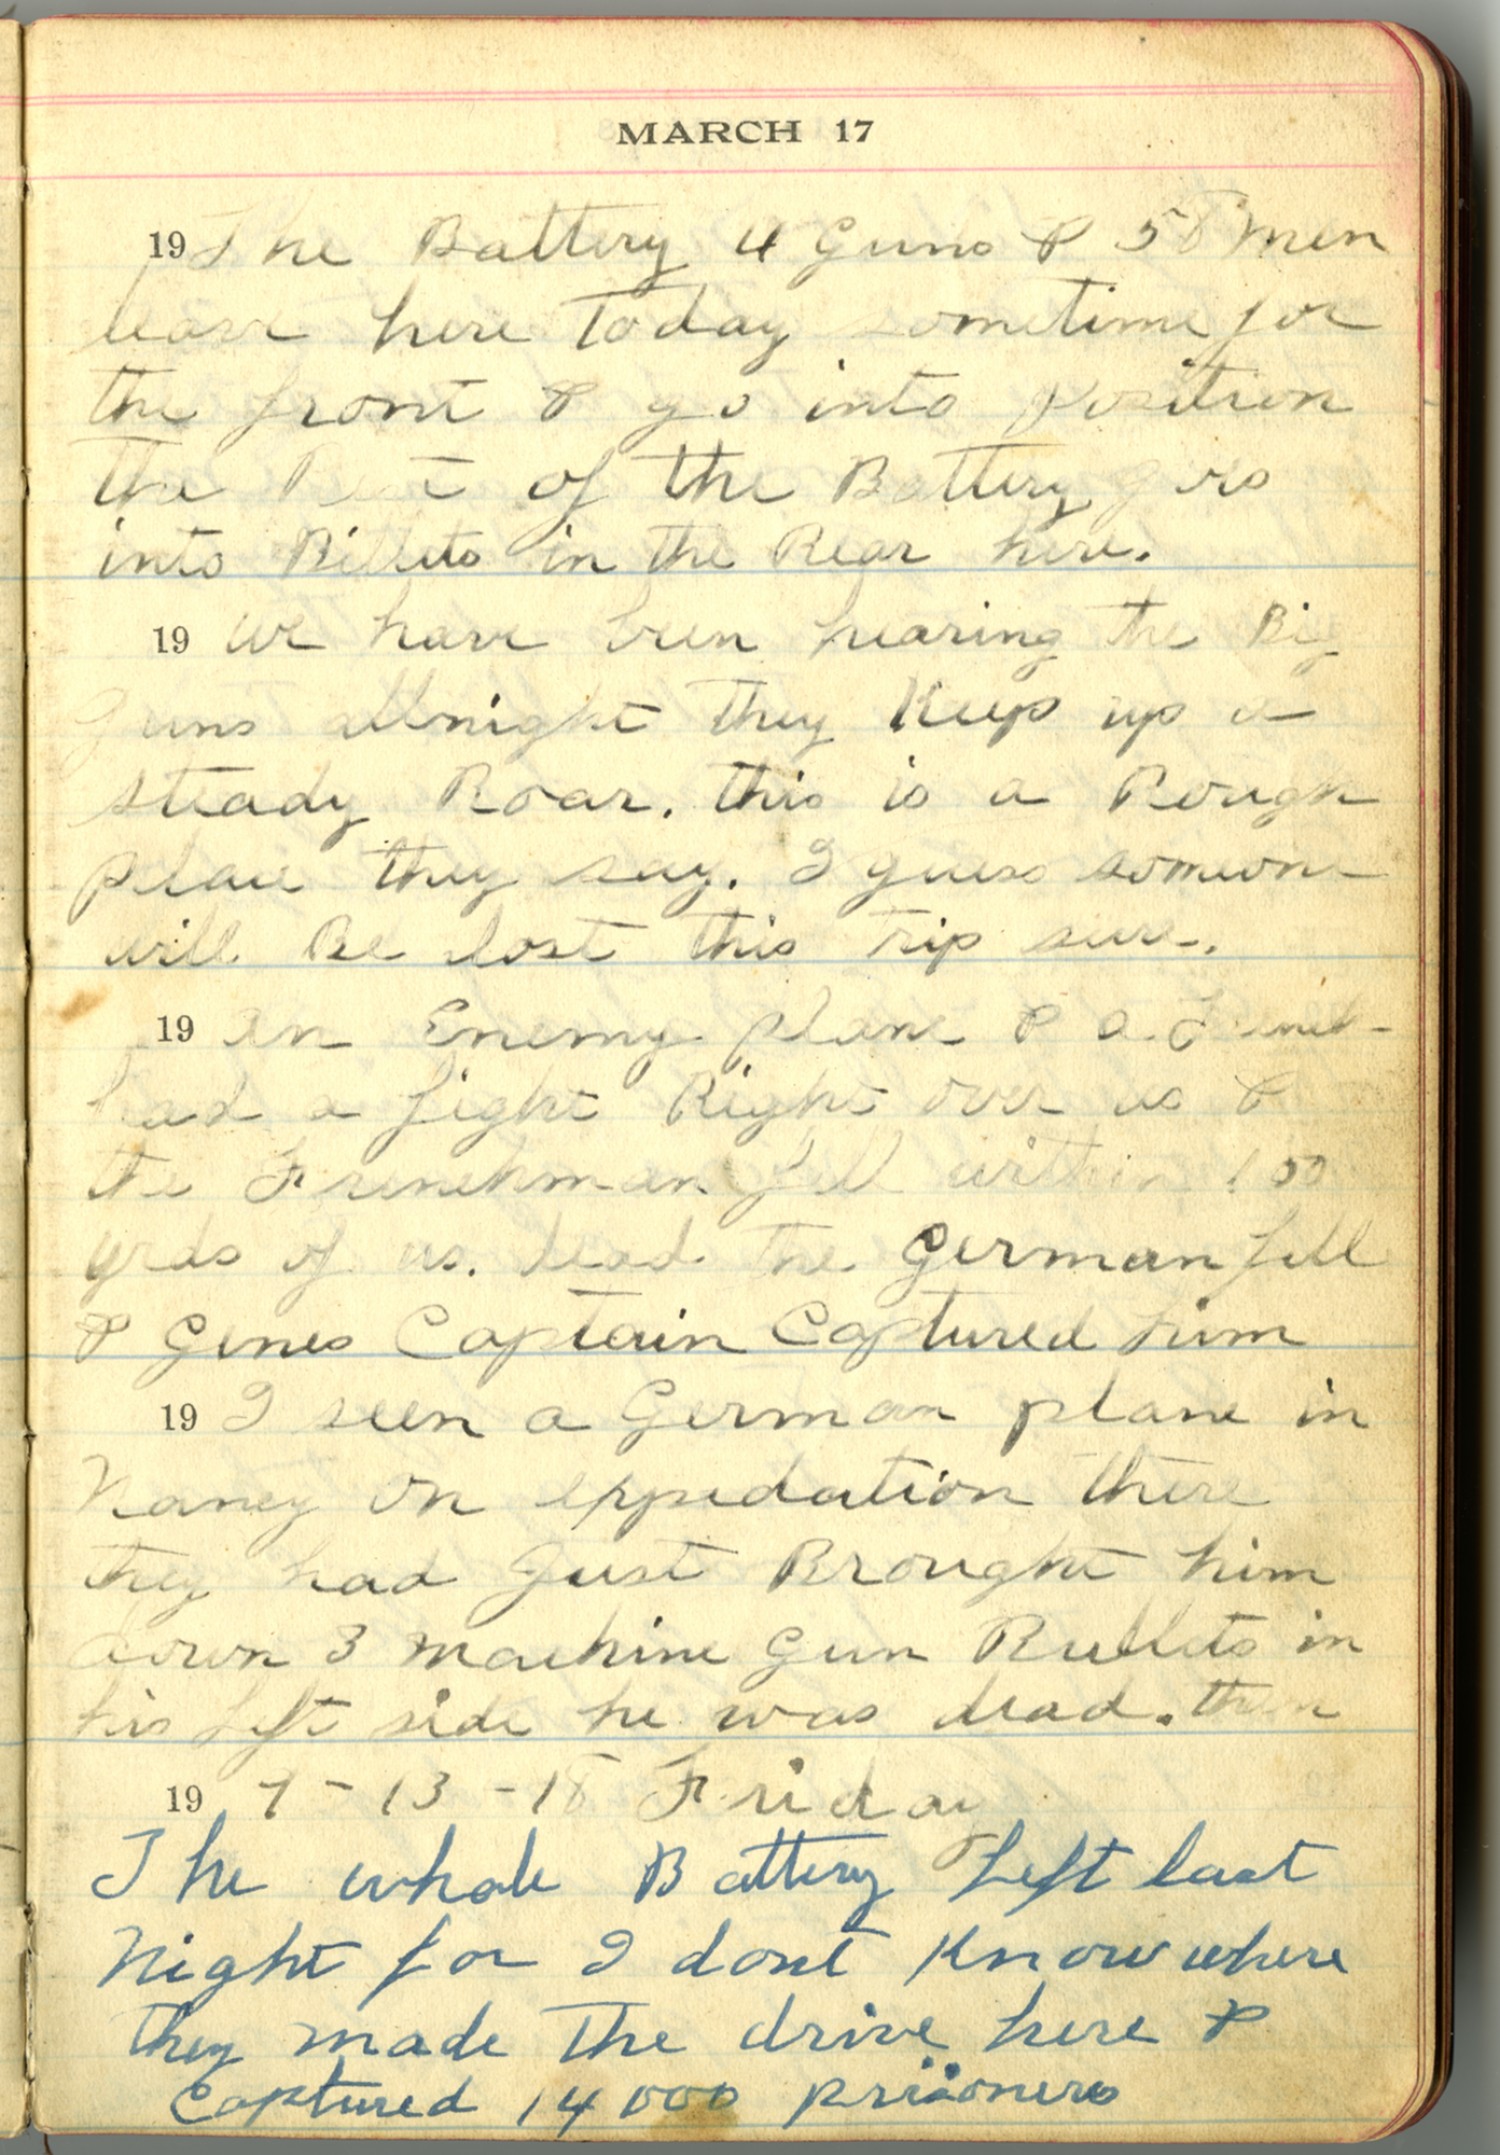 MARCH 17
19 The Battery 4 Guns & 58 men
leave here Today sometime for
the front & go into position
the Rest of the Battery goes
into Billets in the Rear here.
19 we have been hearing the Big
Guns allnight they Keep up a
steady Roar. this is a Rough
place they say. I guess someone
will Be lost this Trip sure.
19 an Enemy plane & a French
had a fight Right over us &
the Frenchman fell within 100
yrds of us. dead the German fell
& Genes Captain Captured him
19 I seen a German plane in
Nancy on eppedation there
they had Just Brought him
down 3 machine Gun Bullets in
his left side he was dead. then
19 9-13-18 Friday
The whole Battery Left last
Night for I dont Know where
they made the drive here &
Captured 14000 prisioners